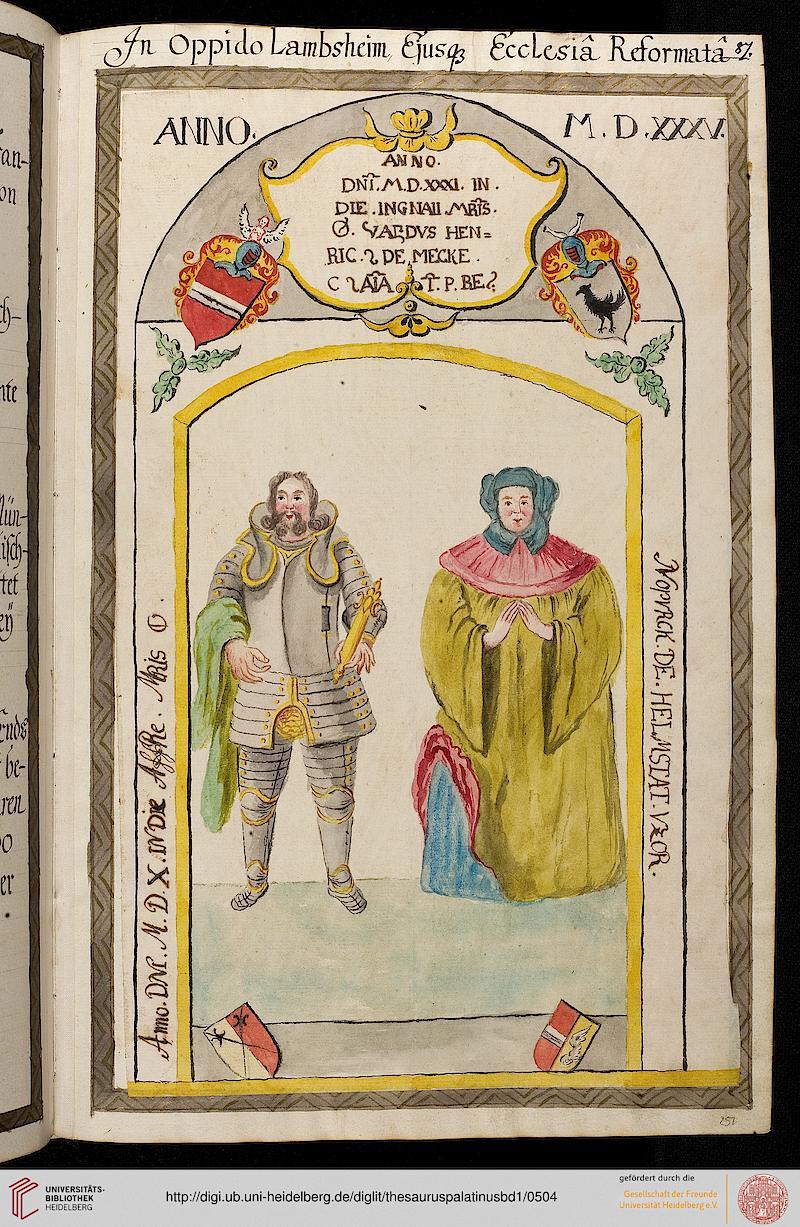 In Oppido Lambsheim, Ejusq₃ Ecclesiâ Reformatâ 87.
ANNO. M.D.XXXV.
ANNO.
DNI. M.D.XXXI. IN.
DIE . INGNAII . MRIS.
O. VARDVS HEN=
RIC. DE MECKE.
T. P. BE
Anno. DNI. M. D. X. IN DIE Affre. Mris O.
NOPYRCK. DE. HELMSTAT. VXOR.
an-
on
ch-
nte
Mün-
isch-
tet
eÿ
ends
be-
ren
00
er
251
UNIVERSITÄTS-
BIBLIOTHEK
HEIDELBERG
http://digi.ub.uni-heidelberg.de/diglit/thesauruspalatinusbd1/0504
gefördert durch die
Gesellschaft der Freunde
Universität Heidelberg e.V.